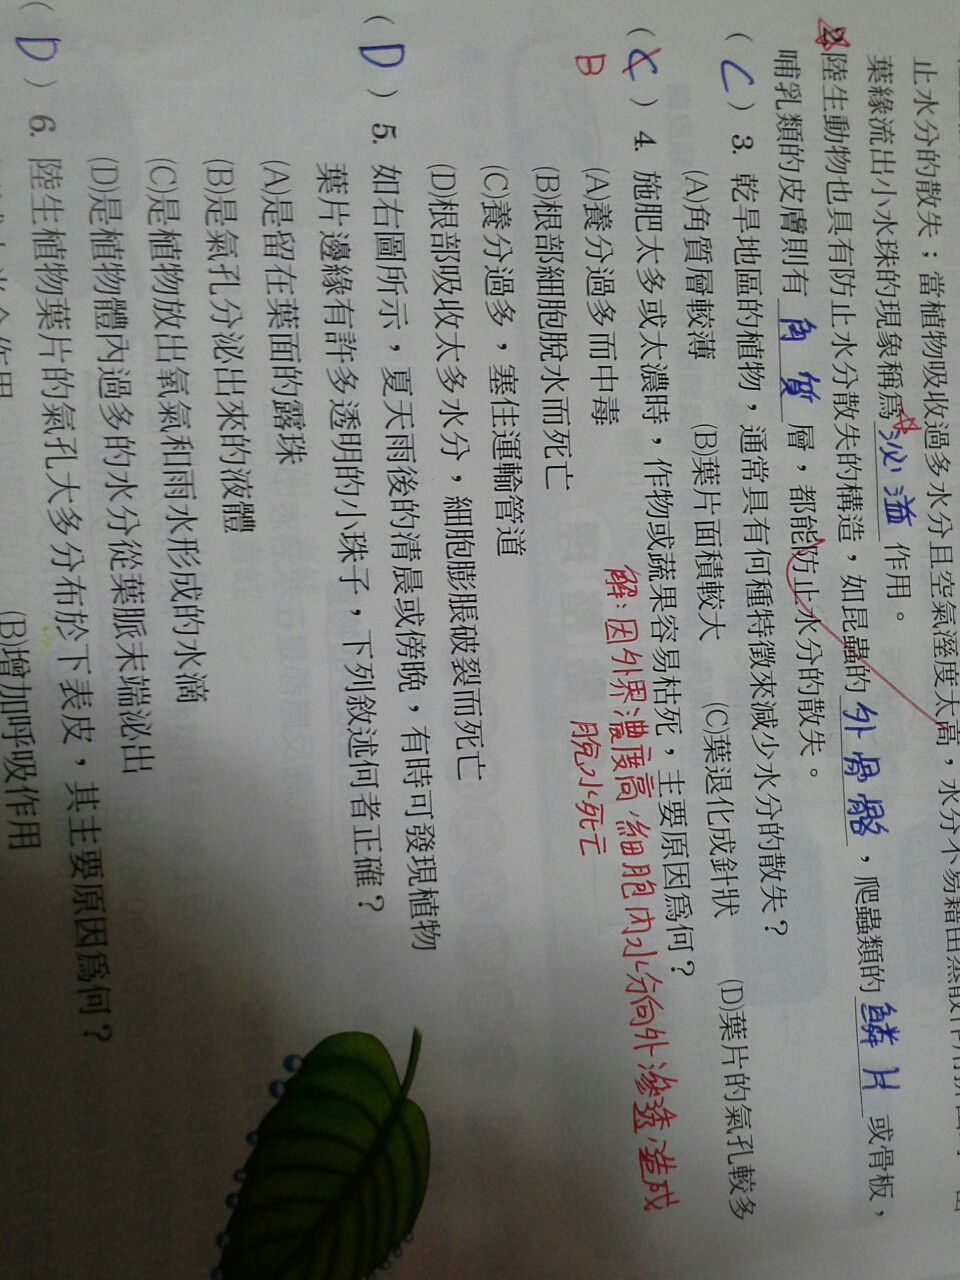 止水分的散失；當植物吸收過多水分且空氣溼度太高，水分不易藉由蒸散作用
葉緣流出小水珠的現象稱為泌溢作用。
2.陸生動物也具有防止水分散失的構造，如昆蟲的外骨骼，爬蟲類的鱗片或骨板，
哺乳類的皮膚則有角質層，都能防止水分的散失。
(C)3. 乾旱地區的植物，通常具有何種特徵來減少水分的散失？
(A)角質層較薄 (B)葉片面積較大 (C)葉退化成針狀 (D)葉片的氣孔較多
(C)4. 施肥太多或太濃時，作物或蔬果容易枯死，主要原因為何？
B
(A)養分過多而中毒
解：因外界濃度高，細胞內水分向外滲透，造成
脫水死亡
(B)根部細胞脫水而死亡
(C)養分過多，塞住運輸管道
(D)根部吸收太多水分，細胞膨脹破裂而死亡
(D)5. 如右圖所示，夏天雨後的清晨或傍晚，有時可發現植物
葉片邊緣有許多透明的小珠子，下列敘述何者正確？
(A)是留在葉面的露珠
(B)是氣孔分泌出來的液體
(C)是植物放出氧氣和雨水形成的水滴
(D)是植物體內過多的水分從葉脈末端泌出
(D)6. 陸生植物葉片的氣孔大多分布於下表皮，其主要原因為何？
(B)增加呼吸作用